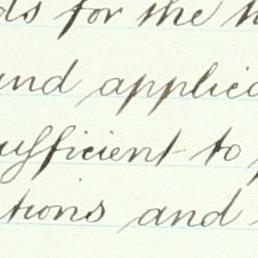 ds for the
and applied
sufficient to
tions and